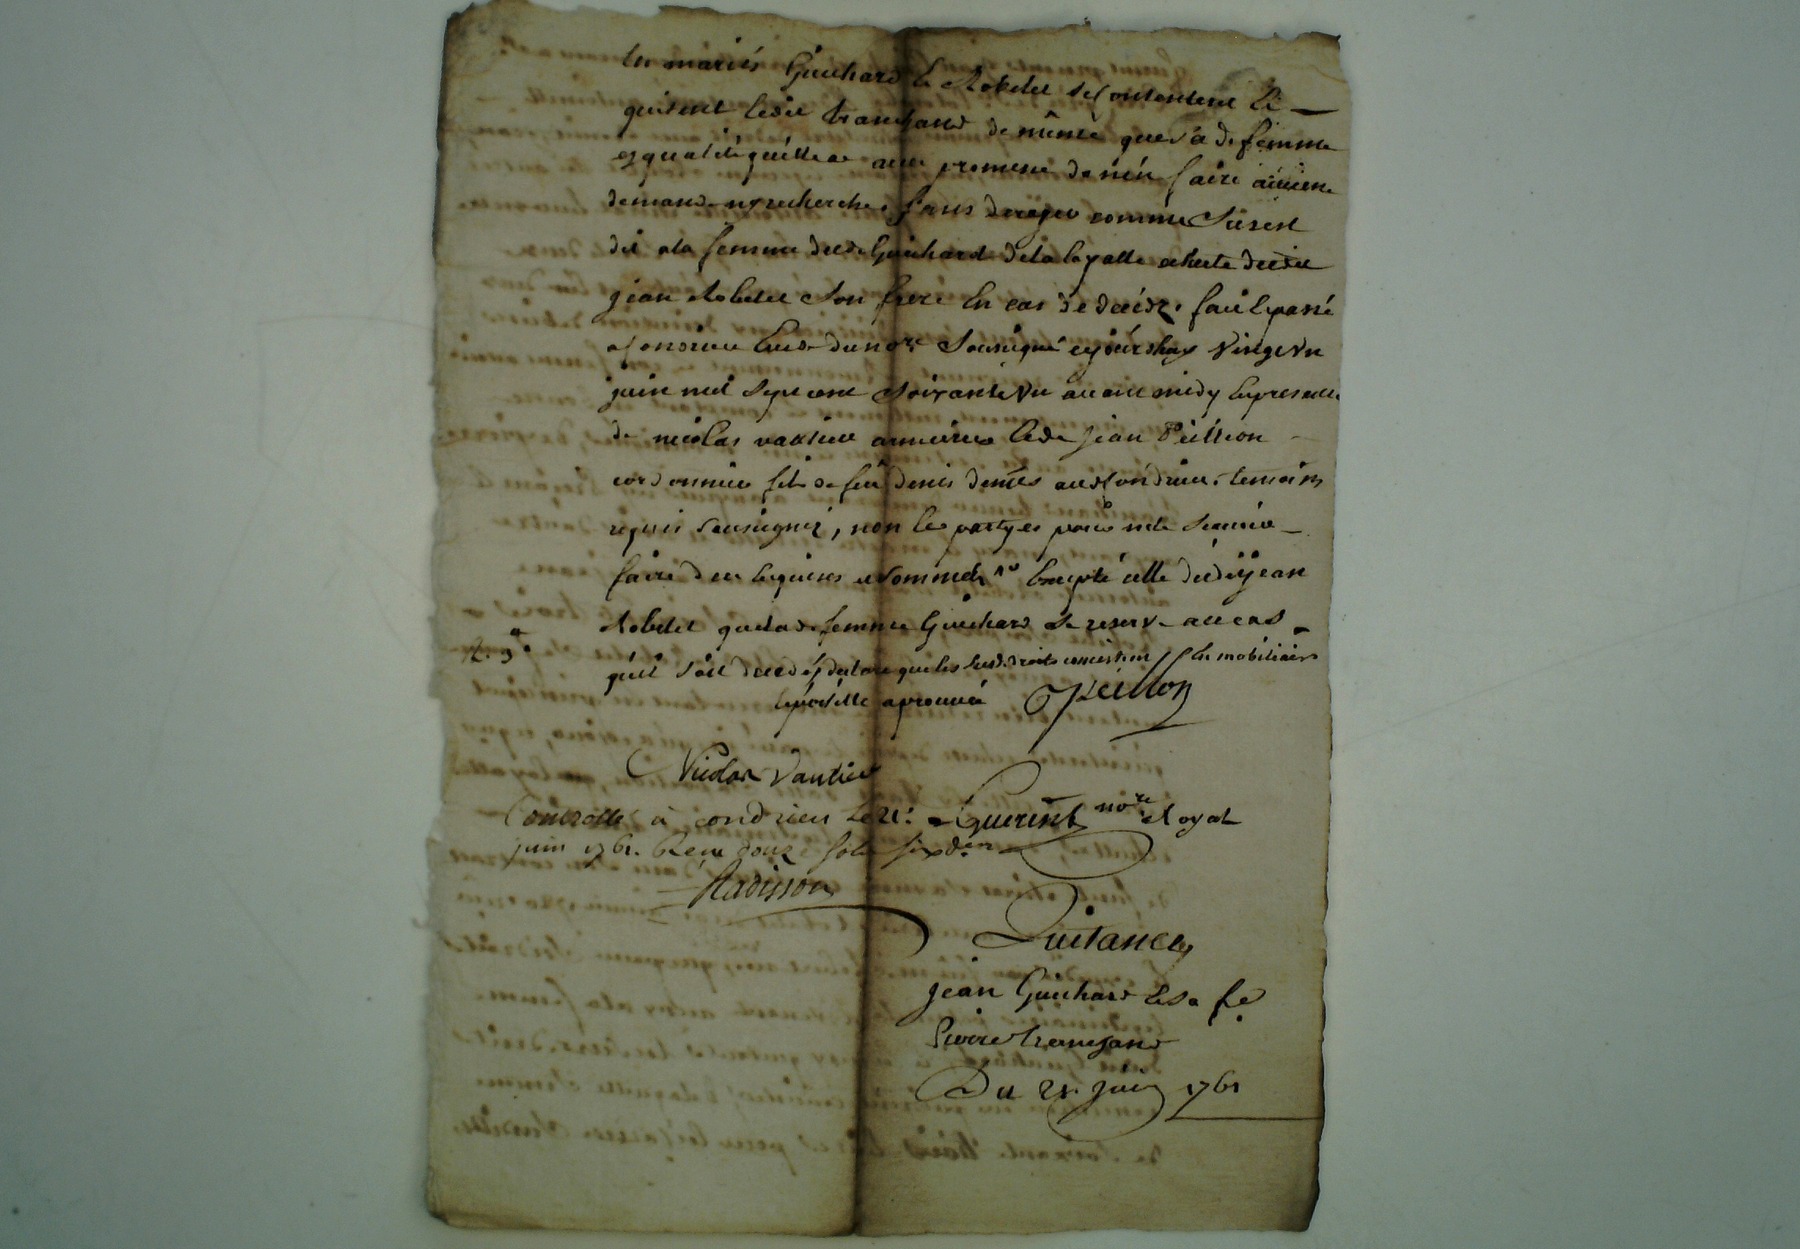 les mariés Guichard & Robelet se contentent &
quittent ledit tranchand de même que sa de femme
esqualité quelle avec promesse de n'en faire aucune
demande ny recherche, sans dereger comme Sus est
dit a la femme dudt Guichard de la layalle echute dudit
jean Robelet son frere En cas de decéds. fait & passé
a Condrieu Etude du nore. Soussigné ce jourdhuy vingt un
juin mil sept cent soixante Un avant midy En presence
de nicolas vautier armurier & de jean Peillion
cordonnier fils de feu denis demts audt Condrieu, temoins
requis soussignéz, non les partyes pour ne le scavoir
faire de ce enquises & sommées
Robelet que lade. femme Guichard se reserve au cas
qu'il soit decedé, declare que les susd. droits consistent En mobiliaire
apostille aprouvée Peillion
Nicolas Vautier
Controllé à Condrieu le 21.
juin 1761. Recu douze sols six den
Guerin nore Royal
Radisson
Quitance
jean Guichard & sa fe.
Pierre tranchand
Du 21. juin 1761